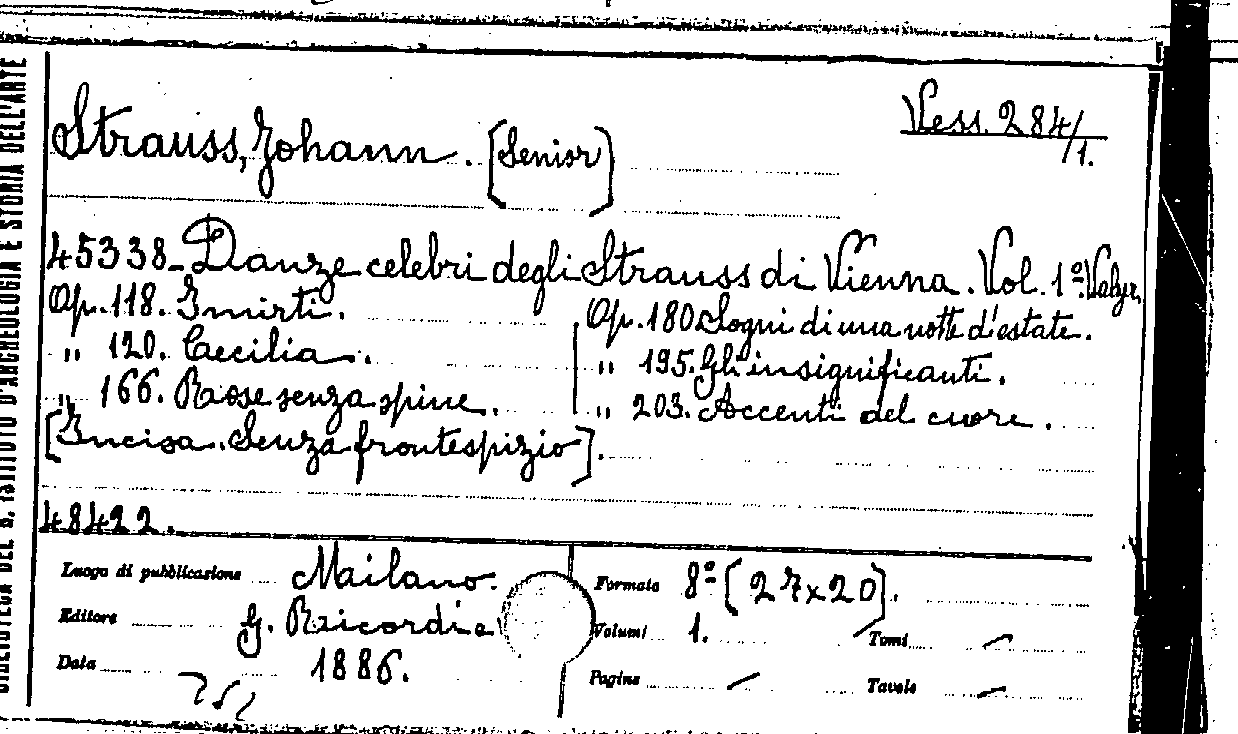 BIBLIOTECA DEL R. ISTITUTO D'ARCHEOLOGIA E STORIA DELL'ARTE
Strauss, Johann. [Senior]
Vess. 284/1.
45338 - Danze celebri degli Strauss di Vienna. Vol. 1º. Valzer.
Op. 118. I mirti.
" 120. Caecilia.
" 166. Rose senza spine.
Op. 180 Sogni di una notte d'estate.
" 195. Gli insignificanti.
" 203. Accenti del cuore.
[Incisa. Senza frontespizio].
48422.
Luogo di pubblicazione Milano.
Editore G. Ricordi e
Data 1886.
Formato 8º [27x20].
Volumi 1. Tomi –
Pagine – Tavole –